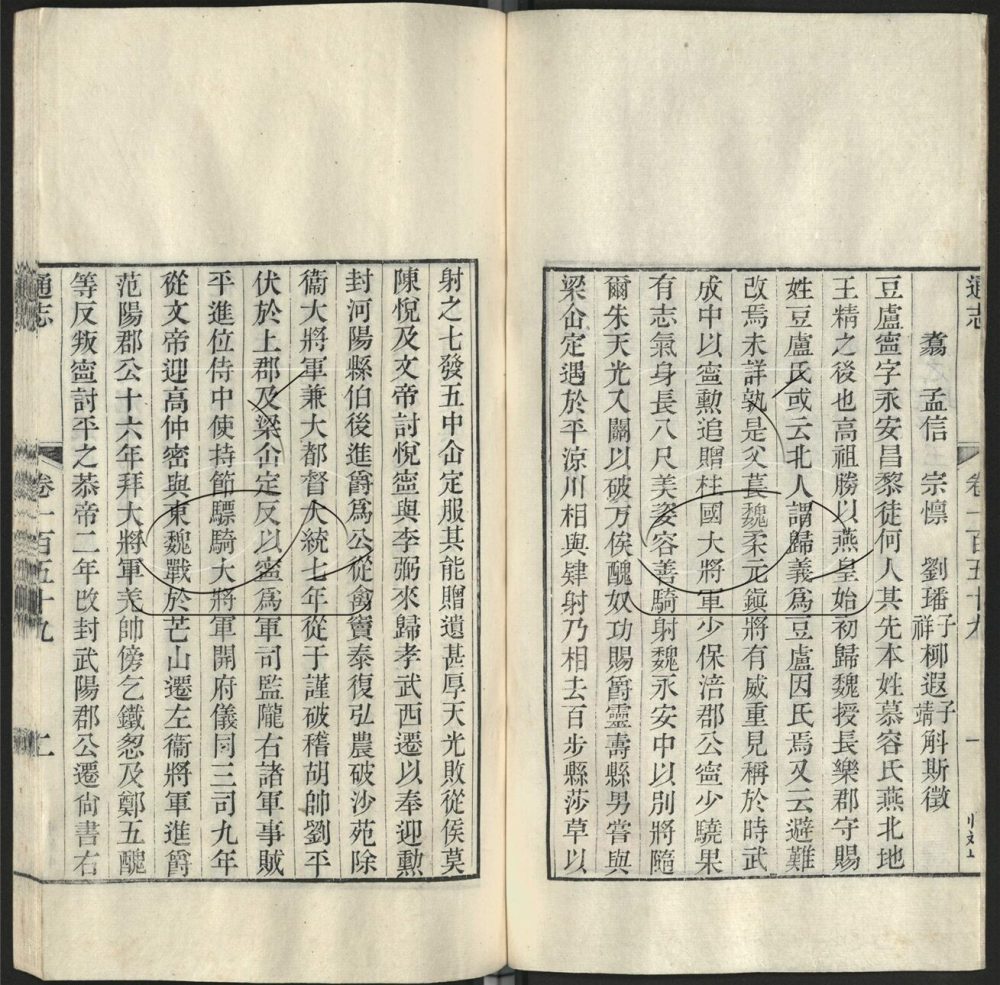 通志 卷一百五十九 一
翥 孟信 宗懍 劉璠 子祥 柳遐 子靖 斛斯徵
豆盧寍字永安昌黎徒何人其先本姓慕容氏燕北地
王精之後也高祖勝以燕皇始初歸魏授長樂郡守賜
姓豆盧氏或云北人謂歸義爲豆盧因氏焉又云避難
改焉未詳孰是父萇魏柔元鎭將有威重見稱於時武
成中以寍勳追贈柱國大將軍少保涪郡公寍少驍果
有志氣身長八尺美姿容善騎射魏永安中以別將隨
爾朱天光入關以破万俟醜奴功賜爵靈壽縣男嘗與
梁仚定遇於平涼川相與肄射乃相去百步縣莎草以
射之七發五中仚定服其能贈遺甚厚天光敗從侯莫
陳悅及文帝討悅寍與李弼來歸孝武西遷以奉迎勳
封河陽縣伯後進爵爲公從禽竇泰復弘農破沙苑除
衞大將軍兼大都督大統七年從于謹破稽胡帥劉平
伏於上郡及梁仚定反以寍爲軍司監隴右諸軍事賊
平進位侍中使持節驃騎大將軍開府儀同三司九年
從文帝迎高仲密與東魏戰於芒山遷左衞將軍進爵
范陽郡公十六年拜大將軍羌帥傍乞鐵怱及鄭五醜
等反叛寍討平之恭帝二年改封武陽郡公遷尙書右
通志 卷一百五十九 二